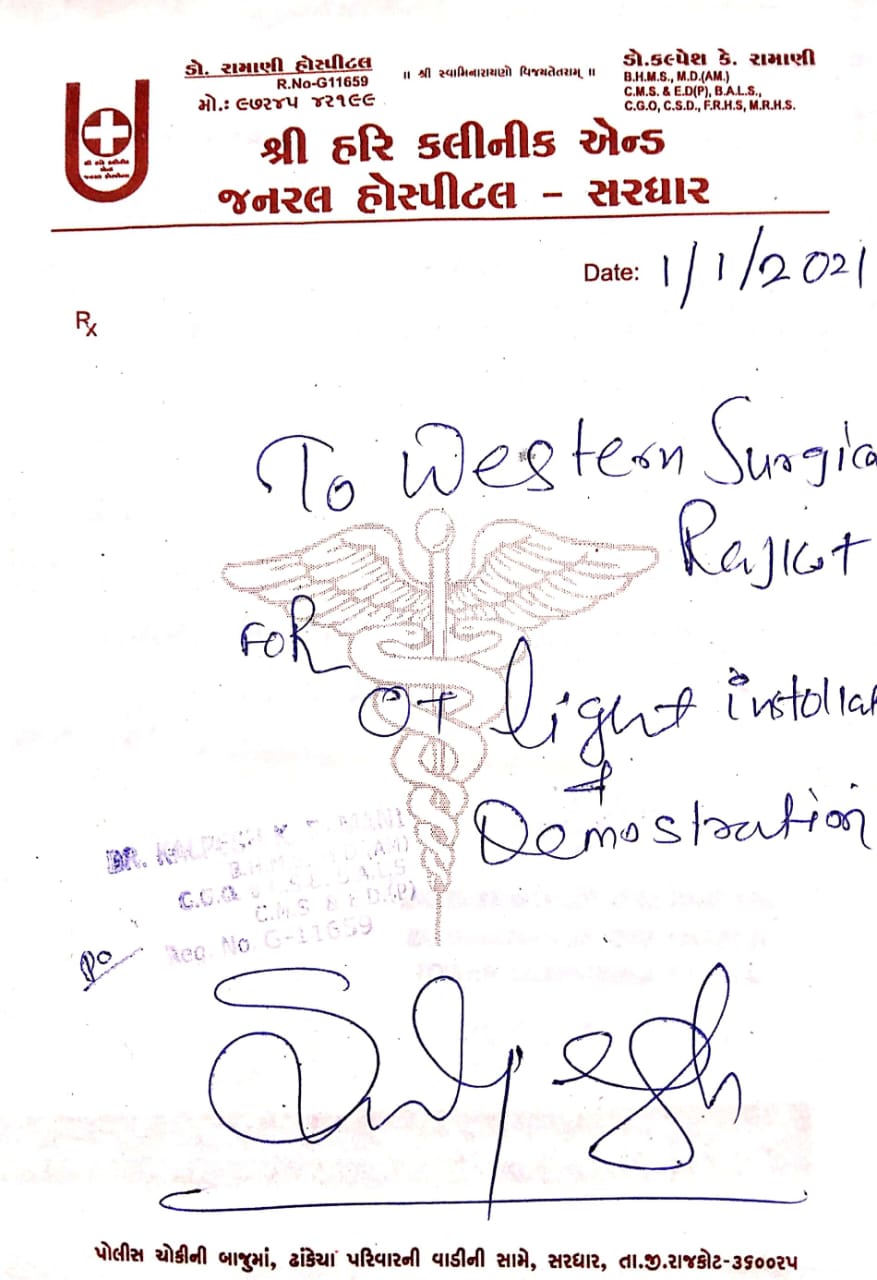 ડો. રામાણી હોસ્પીટલ
R.No-G11659
મો.: ૯૭૨૪૫ ૪૨૧૯૯
॥ શ્રી સ્વામિનારાયણો વિજયતેતરામ્ ॥
ડો.કલ્પેશ કે. રામાણી
B.H.M.S., M.D.(AM.)
C.M.S. & E.D(P), B.A.L.S.,
C.G.O, C.S.D., F.R.H.S, M.R.H.S.
શ્રી હરિ કલીનીક એન્ડ
જનરલ હોસ્પીટલ - સરધાર
Date: 1/1/2021
Rx
To Western Surgica
Rajkot
FOR
OT light instollat
&
Demostration
DR. KALPESH K. RAMANI
C.M.S & E.D.(P)
Reg. No. G-11659
પોલીસ ચોકીની બાજુમાં, ઢાંકેચા પરિવારની વાડીની સામે, સરધાર, તા.જી.રાજકોટ-૩૬૦૦૨૫